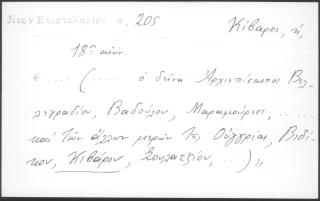 Νεον Επιστολαριον σ. 205
Κίβαροι, ἡ,
18ος αἰών.
«.... (..... ὁ δεῖνα Ἀρχιεπίσκοπος Βελ-
λεγραδίου, Βαδούζου, Μαραμούρεσι, ......
καί τῶν ἄλλων μερῶν τῆς Οὑγγρίας, Βιδύ-
νου, Κιβάρου, Σουλατζίου, ....)»